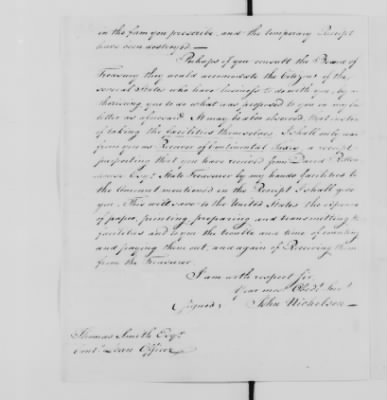 in the form you prescribe, and the temporary Receipt
have been destroyed —
Perhaps if you consult the Board of
Treasury they would accomodate the Citizens of the
several States who have business to do with you, by au
thorising you to do what was proposed to you in my
letter as aforesaid It may be also observed, that instead
of taking the facilities themselves, I shall only want
from you as Receiver of Continental taxes, a receipt
purporting that you have received from David Ritten
house Esqr. State Treasurer by my hands facilities to
the amount mentioned in the Receipt I shall give
you. This will save to the United States the expence
of paper, printing, preparing and transmitting the
facilities and to you the trouble and time of counting
and paying them out, and again of Receiving them
from the Treasurer.
I am with respect Sir
Your most Obedt. Servt.
(Signed) John Nicholson —
Thomas Smith Esqr.
Contl. Loan Officer